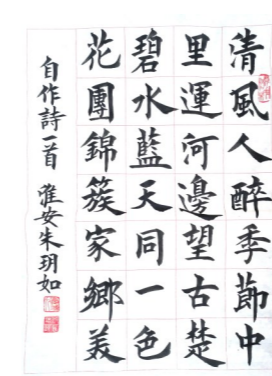 清風人醉季節中
里運河邊望古楚
碧水藍天同一色
花團錦簇家鄉美
自作詩一首 淮安朱玥如